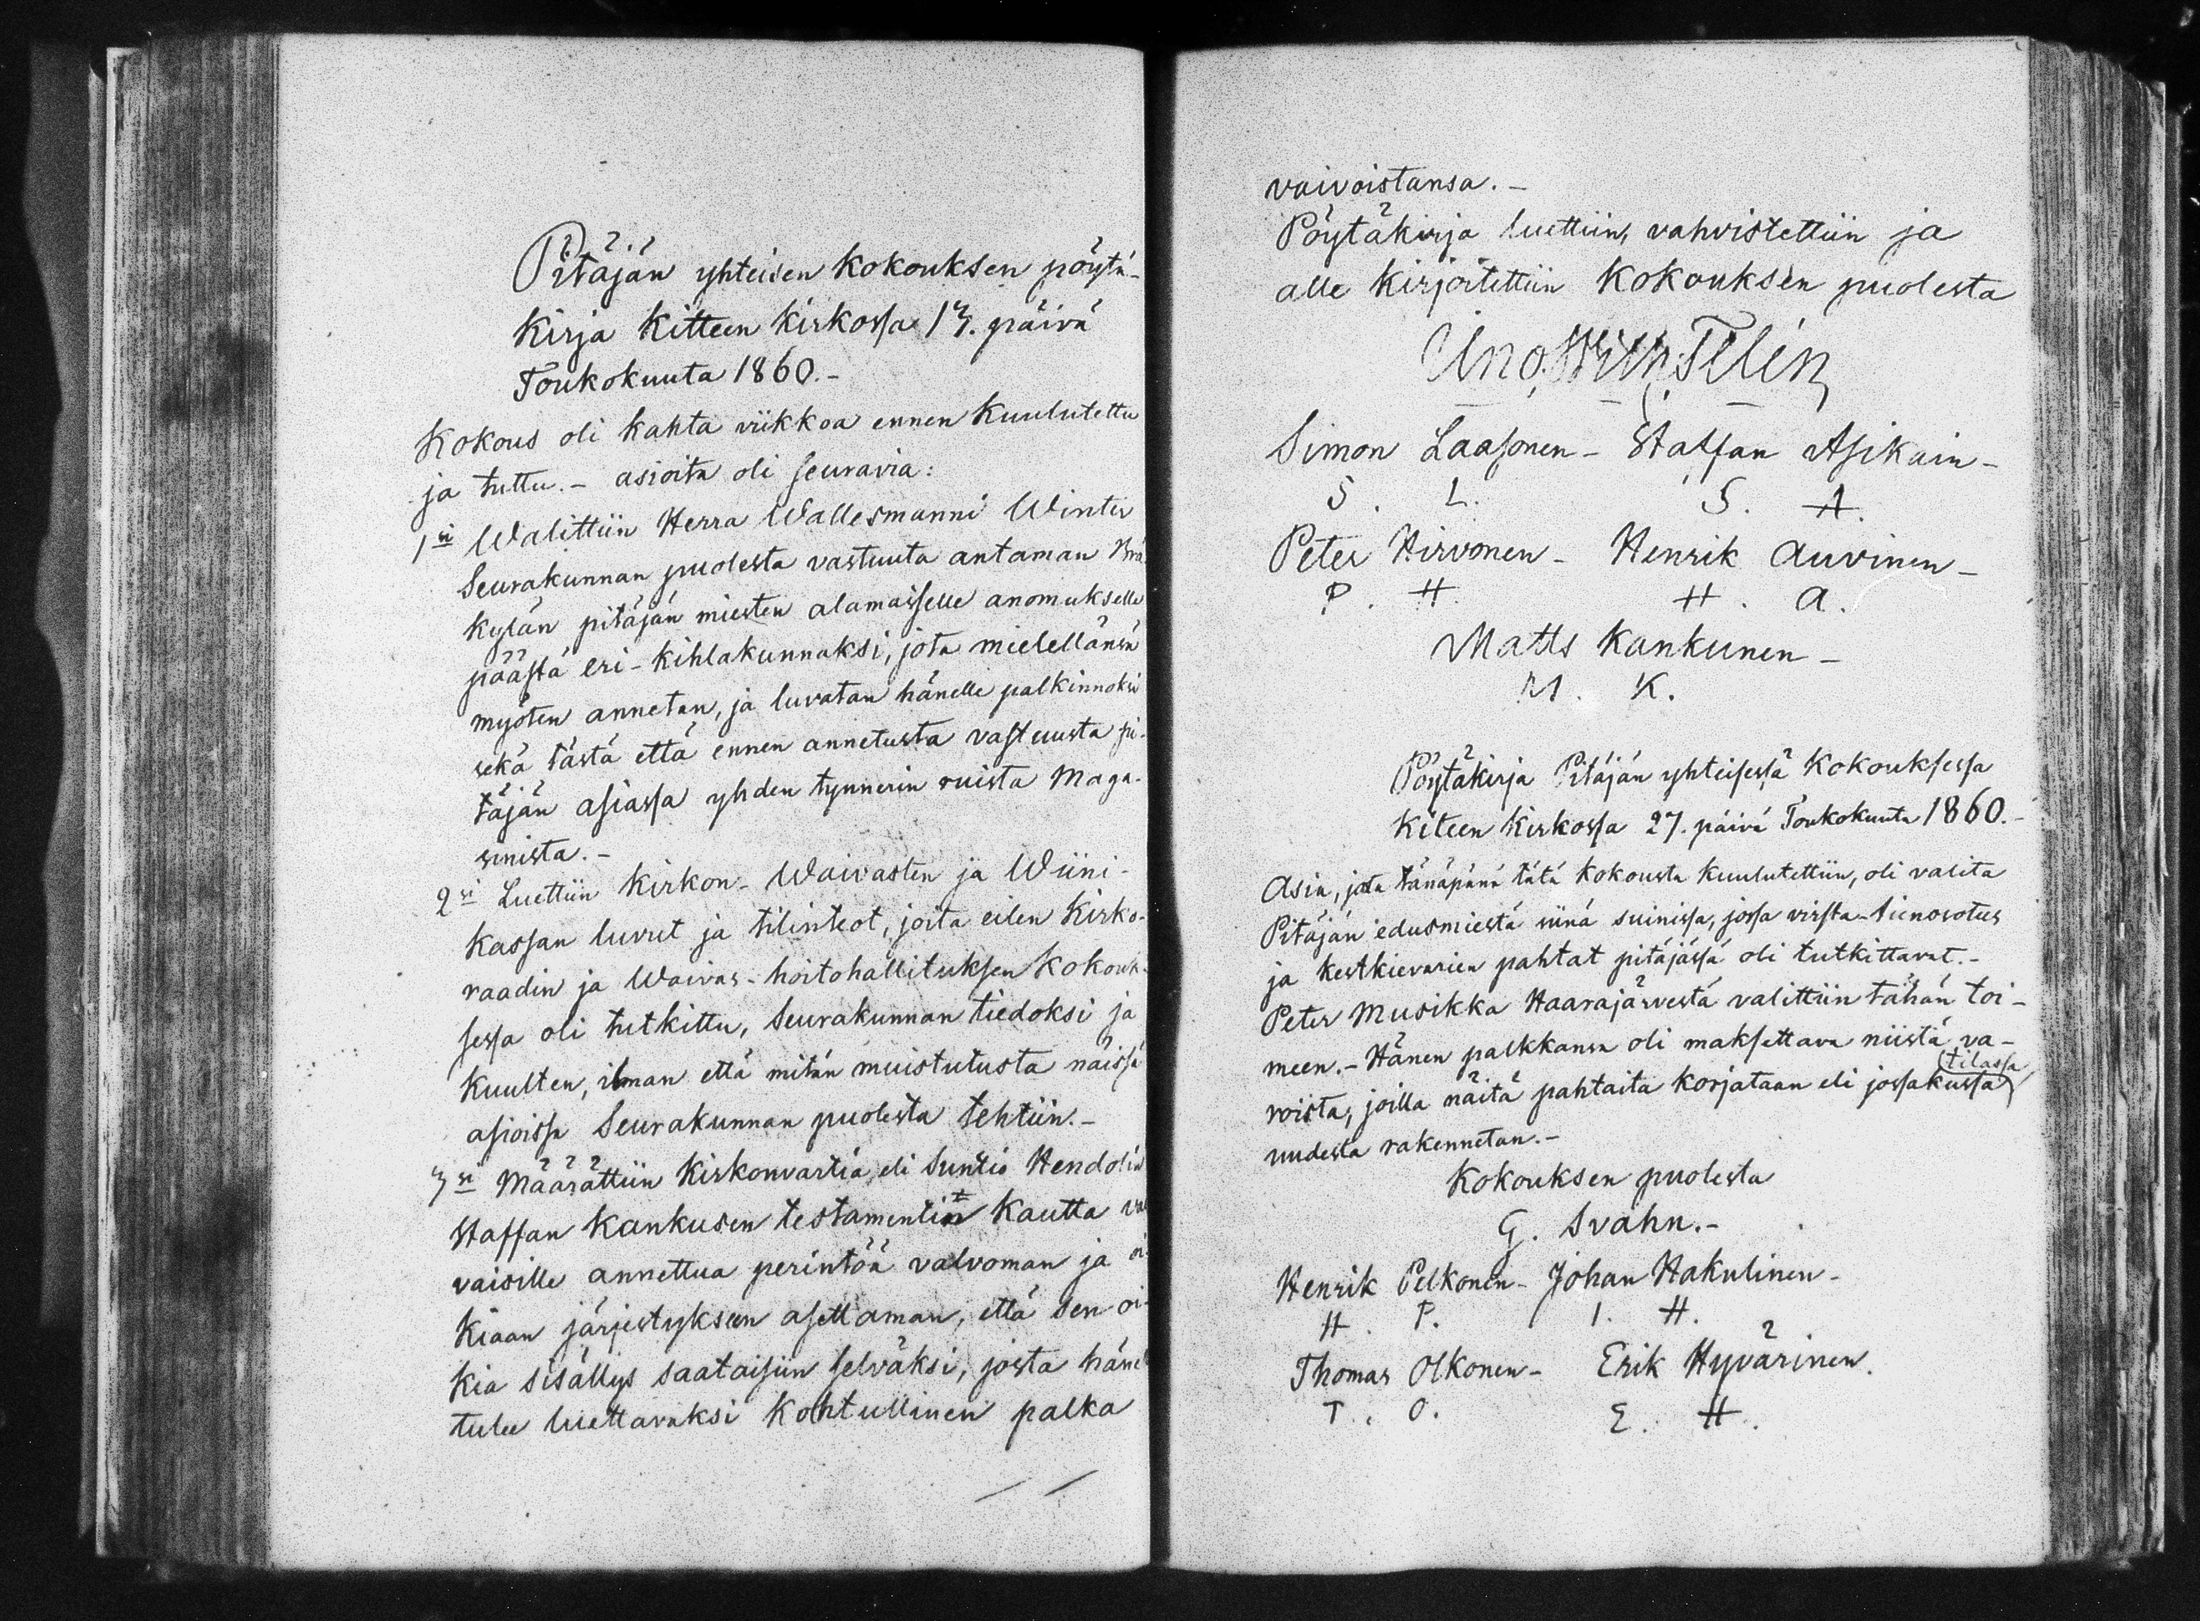 Pitäjän yhteisen kokouksen pöytä-
kirja Kitteen kirkossa 13. päivä
Toukokuuta 1860.-
Kokous oli kahta viikkoa ennen kuulutettu
ja tuttu.- asioita oli seuravia:
1si Walittiin Herra Wallesmanni Winter
Seurakunnan puolesta vastuuta antaman
kylän pitäjän miesten alamaisselle anomukselle
päästä eri-kihlakunnaksi, jota mielellänsä
myöten annetan, ja luvatan hänelle palkinnoksi
sekä tästä että ennen annetusta vastuusta pi-
täjän asiassa yhden tynnerin ruista Maga-
sinista.-
2si Luettiin Kirkon- Waivasten ja Wiini-
kassan luvut ja tilinteot, joita eilen Kirko-
raadin ja Waivas-hoitohallituksen kokouk-
sessa oli tutkittu, Seurakunnan tiedoksi ja
kuulten, ilman että mitän muistutusta näissä
asioissa Seurakunnan puolesta tehtiin.-
3si Määrättiin Kirkonvartia eli Suntio Hendolin
Staffan Kankusen testamentin kautta va
vaisille annettua perintöä valvoman ja oi
kiaan järjestykseen asettaman, että sen oi-
kia sisällys saataisiin selväksi, josta hänel
tulee luettavaksi kohtullinen palka
vaivoistansa.-
Pöytäkirja luettiin, vahvistettiin ja
alle kirjoitettiin Kokouksen puolesta
Uno Telén
Simon Laasonen- Staffan Asikain-
S. L. S. A.
Peter Hirvonen- Henrik Auvinen-
P. H. H. A.
Matts Kankunen-
M. K.
Pöytäkirja Pitäjän yhteisestä kokouksessa
Kiteen Kirkossa 27. päivä Toukokuuta 1860.-
Asia, jota tänäpänä tätä kokousta kuulutettiin, oli valita
Pitäjän edusmiestä siinä suinissa, jossa virsta-tienosotus
ja kestkievarien pahtat pitäjässä oli tutkittavat.-
Peter Musikka Haarajärvestä valittiin tähän toi-
meen.- Hänen palkkansa oli maksettava niistä va-
roista, joilla näitä pahtaita korjataan eli jossakussa
tilassa
uudesta rakennetan.-
Kokouksen puolesta
G. Svahn.-
Henrik Pelkonen- Johan Hakulinen-
H. P. I. H.
Thomas Olkonen- Erik Hyvärinen.
T. O. E. H.